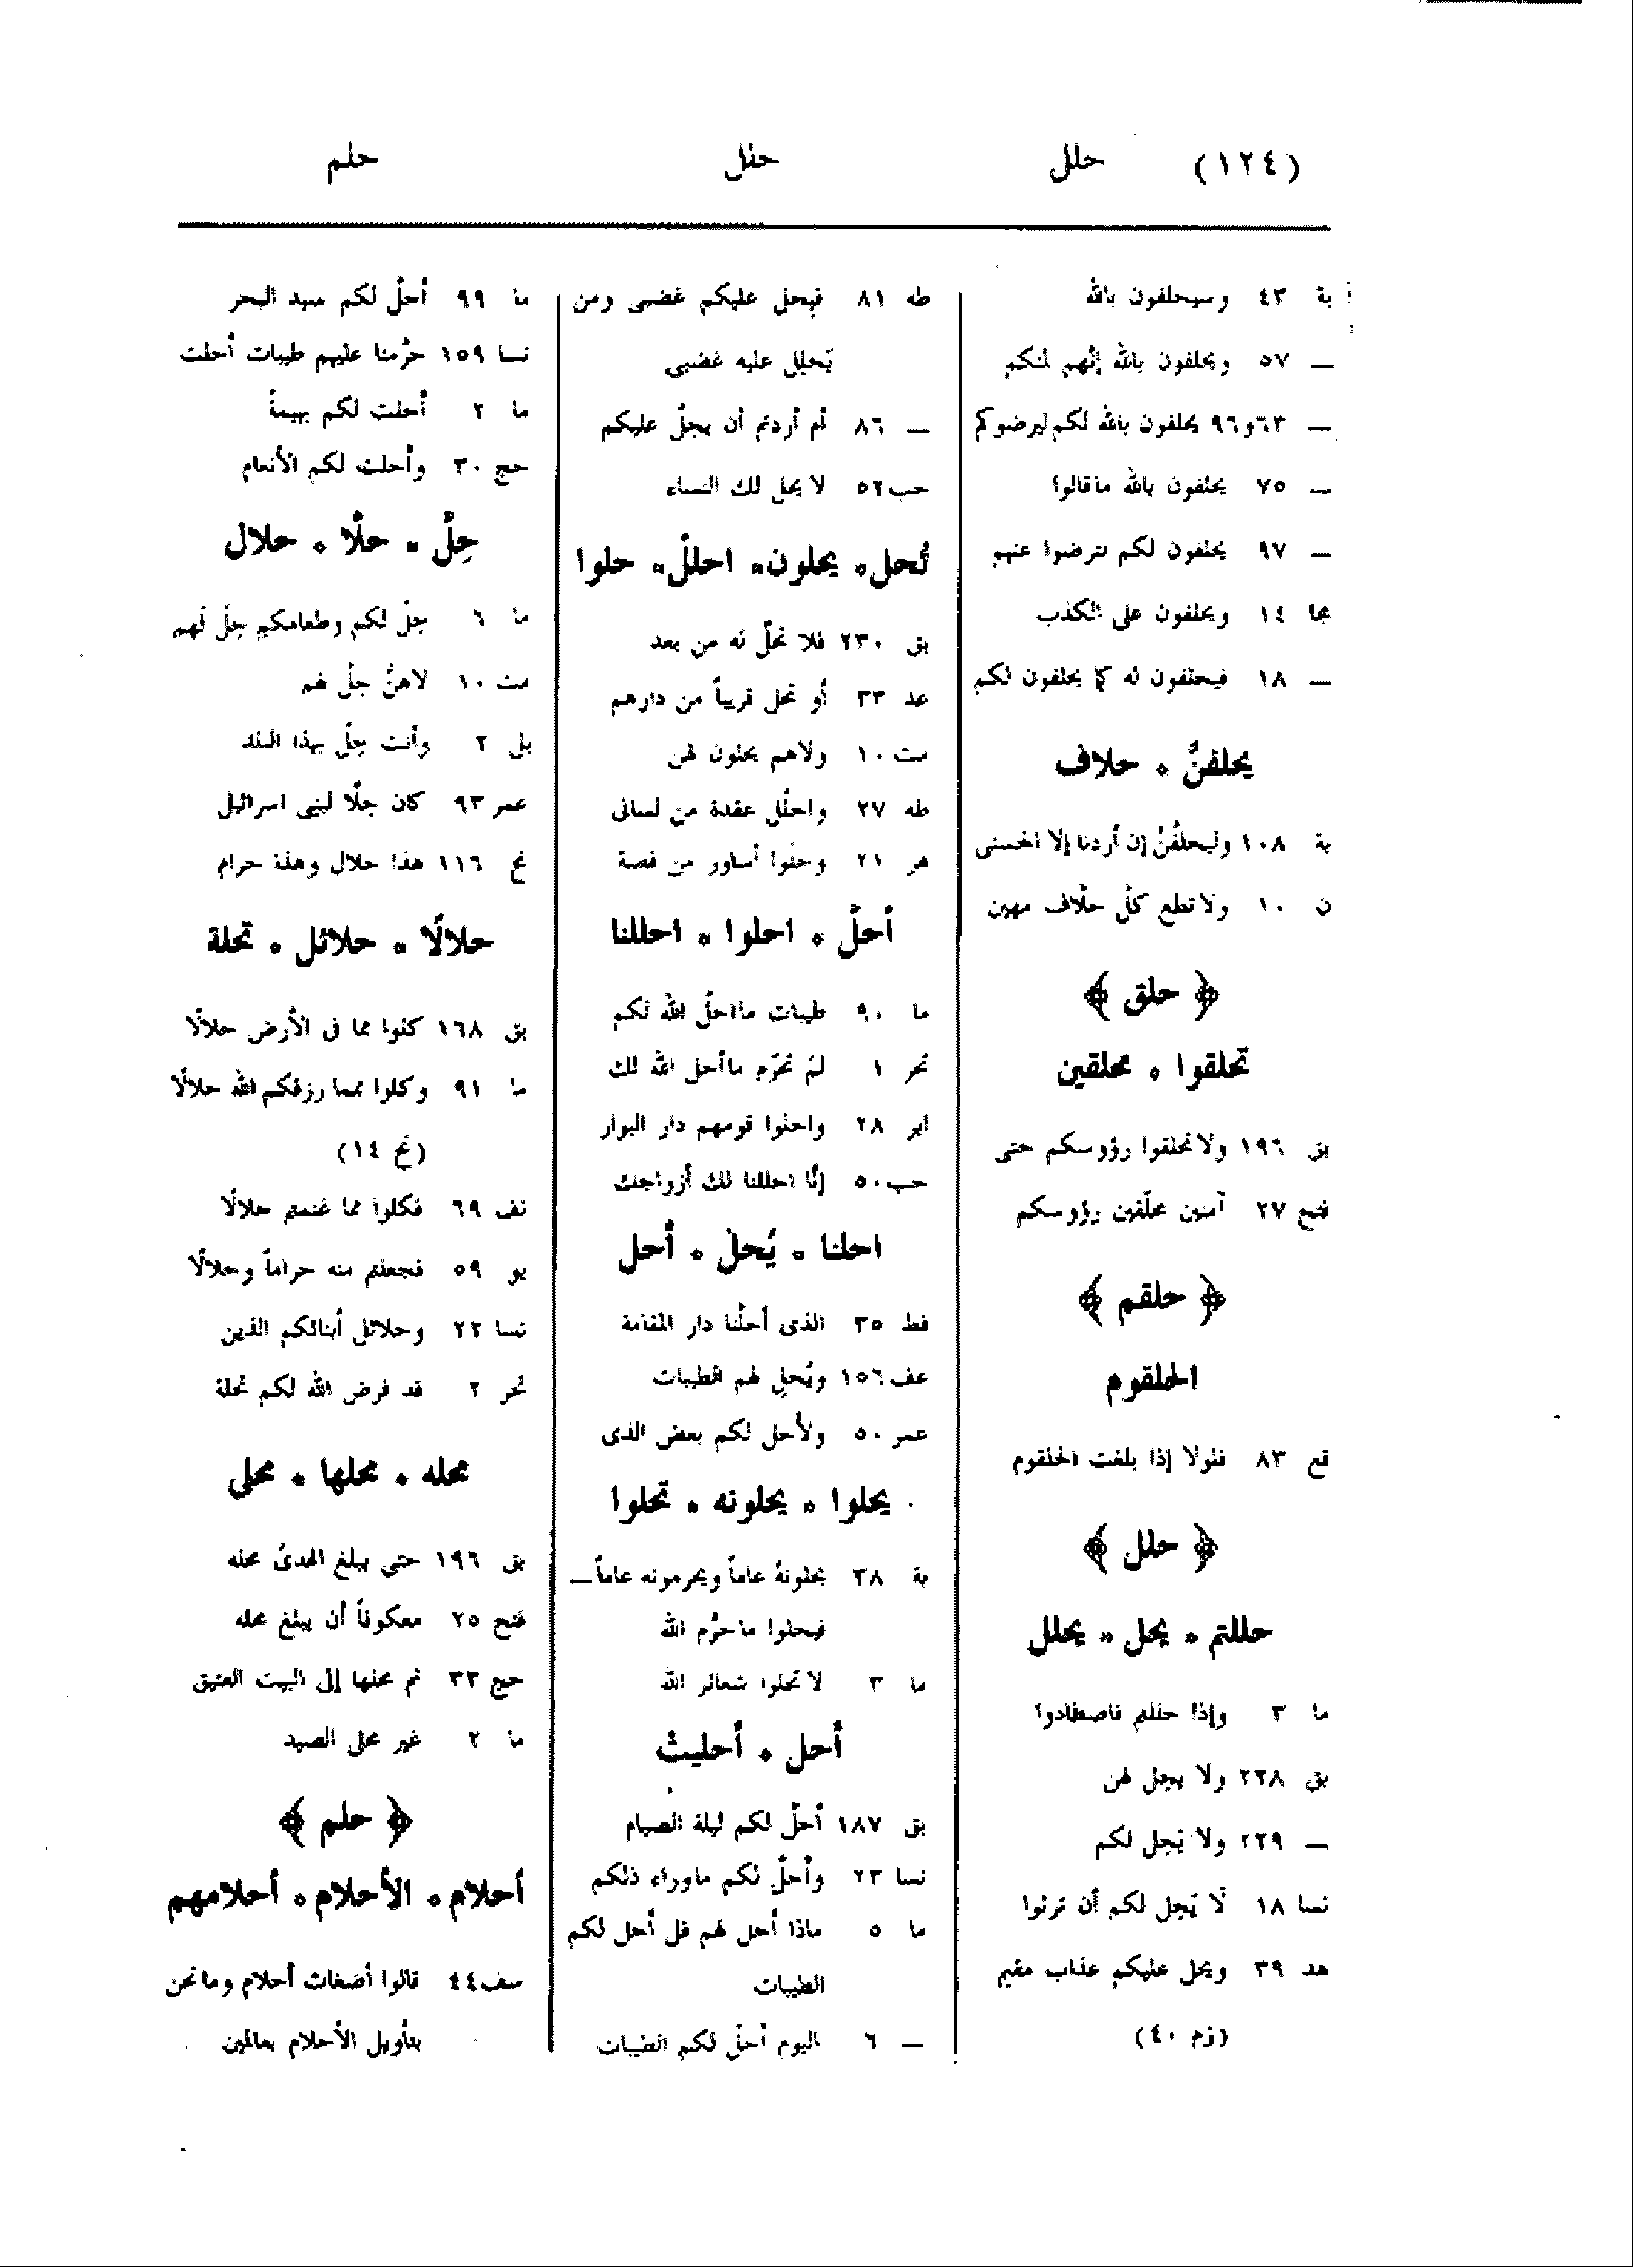 (١٢٤) حلل حلل حلم
بة ٤٣ وسيحلفون بالله
ــ ٥٧ ويحلفون بالله إنّهم لمنكم
ــ ٦٣و٩٦ يحلفون بالله لكم ليرضوكم
ــ ٧٥ يحلفون بالله ماقالوا
ــ ٩٧ يحلفون لكم لترضوا عنهم
مجا ١٤ ويحلفون على الكذب
ــ ١٨ فيحلفون له كما يحلفون لكم
يحلفنّ ٭ حلاف
بة ١٠٨ وليحلفُنّ إن أردنا إلا الحسنى
ن ١٠ ولا تطع كلّ حلّاف مهين
﴿ حلق ﴾
تحلقوا ٭ محلقين
بق ١٩٦ ولا تحلقوا رؤوسكم حتى
فتح ٢٧ آمنين محلّقين رؤوسكم
﴿ حلقم ﴾
الحلقوم
قع ٨٣ فلولا إذا بلغت الحلقوم
﴿ حلل ﴾
حللتم ٭ يحل ٭ يحلل
ما ٣ وإذا حللتم فاصطادوا
بق ٢٢٨ ولا يحل لهن
ــ ٢٢٩ ولا يَحِل لكم
نسا ١٨ لَا يَحِل لكم أن ترثوا
هد ٣٩ ويحل عليكم عذاب مقيم
(زم ٤٠)
طه ٨١ فيحل عليكم غضبى ومن
يَحلِل عليه غضبى
ــ ٨٦ أم أردتم أن يحلّ عليكم
حب ٥٢ لا يحل لك النساء
تُحل ٭ يحلون ٭ احللْ ٭ حلوا
بق ٢٣٠ فلا تحلّ له من بعد
عد ٣٣ أو تحل قريباً من دارهم
مت ١٠ ولاهم يحلون لهن
طه ٢٧ واحلُل عقدة من لسانى
هر ٢١ وحلّوا أساور من فضة
أحلّ ٭ احلوا ٭ احللنا
ما ٩٠ طيبات ما احلّ الله لكم
تحر ١ لمَ تحرّم ما أحل الله لك
ابر ٢٨ واحلوا قومهم دار البوار
حب ٥٠ إنّا احللنا لك أزواجك
احلنا ٭ يُحلّ ٭ أُحل
فط ٣٥ الذى أحلّنا دار المقامة
عف ١٥٦ ويُحل لهم الطيبات
عمر ٥٠ ولأحل لكم بعض الذى
يحلوا ٭ يحلونه ٭ تحلوا
بة ٣٨ يحلونهُ عاماً ويحرمونه عاماً ــ
فيحلوا ما حرّم الله
ما ٣ لا تحلوا شعائر الله
أُحل ٭ أُحليتْ
بق ١٨٧ أُحلّ لكم ليلة الصيام
نسا ٢٣ وأُحلّ لكم ماوراء ذلكم
ما ٥ ماذا أُحل لهم قل أُحل لكم
الطيبات
ــ ٦ اليوم أحلّ لكم الطيبات
ما ٩٩ أُحلّ لكم صيد البحر
نسا ١٥٩ حرّمنا عليهم طيبات أُحلت
ما ٢ أُحلت لكم بهيمةُ
حج ٣٠ وأُحلت لكم الأنعام
حِلّ ٭ حلّا ٭ حلال
ما ٦ حِلّ لكم وطعامكم حِلّ لهم
مت ١٠ لاهنّ حِلّ لهم
بل ٢ وأنت حِلّ بهذا البلد
عمر ٩٣ كان حِلّا لبنى اسرائيل
نح ١١٦ هذا حلال وهذا حرام
حلالًا ٭ حلائل ٭ تحلة
بق ١٦٨ كلوا مما فى الأرض حلالًا
ما ٩١ وكلوا مما رزقكم الله حلالًا
(نح ١٤)
نف ٦٩ فكلوا مما غنمتم حلالًا
يو ٥٩ فجعلتم منه حراماً وحلالًا
نسا ٢٢ وحلائل أبنائكم الذين
تحر ٢ قد فرض الله لكم تحلة
محله ٭ محلها ٭ محلى
بق ١٩٦ حتى يبلغ الهدىُ محله
فتح ٢٥ معكوفاً أن يبلغ محله
حج ٣٣ ثم محلها إلى البيت العتيق
ما ٢ غير محلى الصيد
﴿ حلم ﴾
أحلام ٭ الأحلام ٭ أحلامهم
سف ٤٤ قالوا أضغاث أحلام ومانحن
بتأويل الأحلام بعالمين